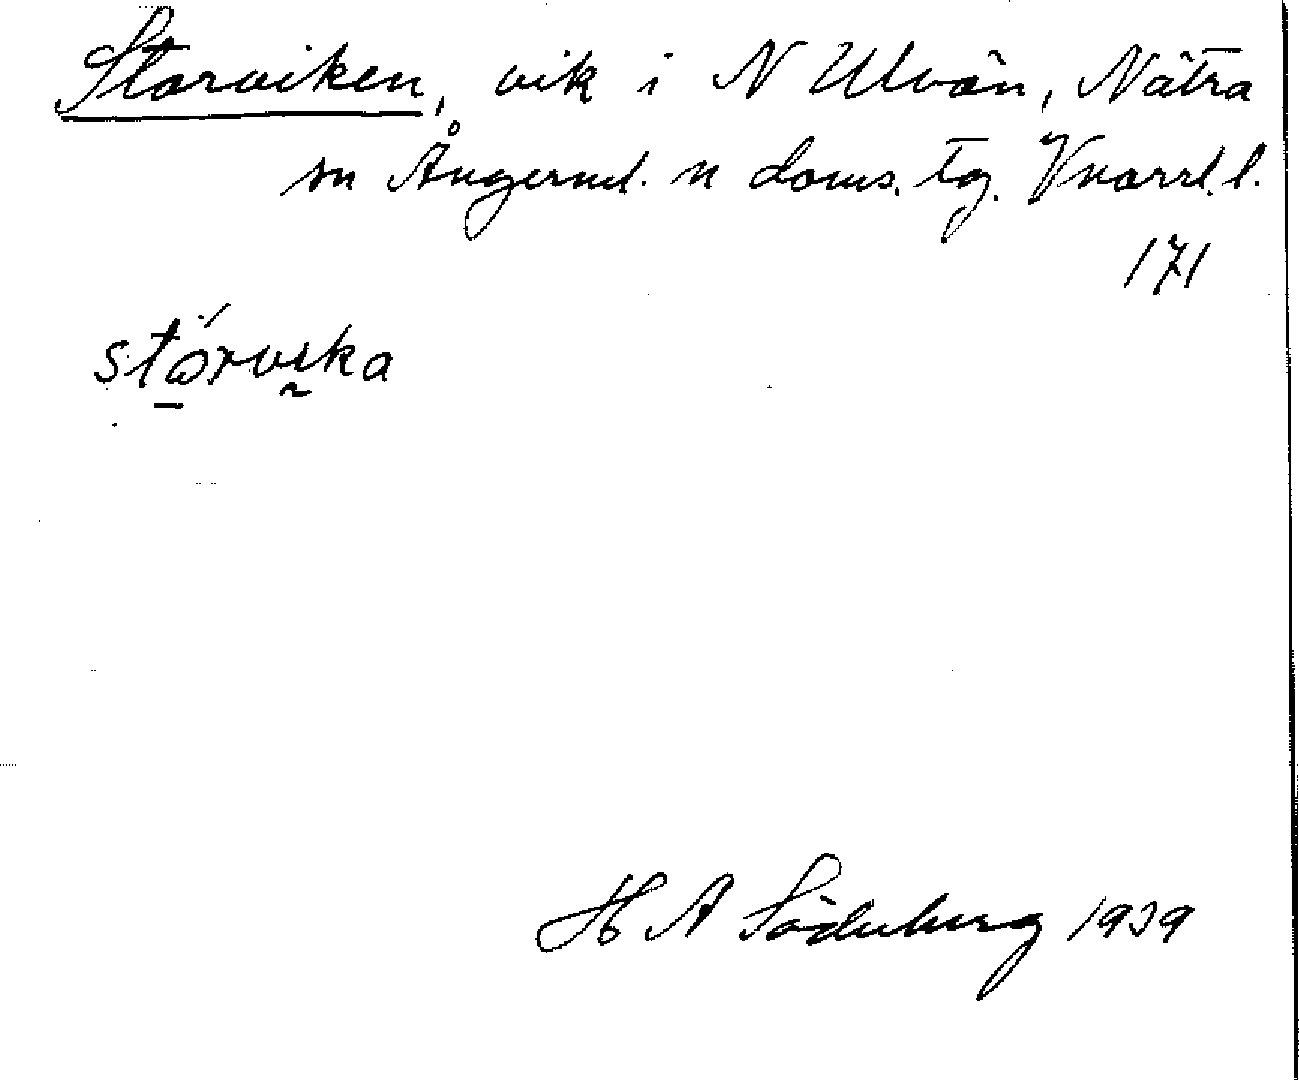 Storviken, vik i N Ulvön, Nätra
sn Ångerml. n doms. tg. Kvarrl. l.
171
störvika
H A Söderberg 1939